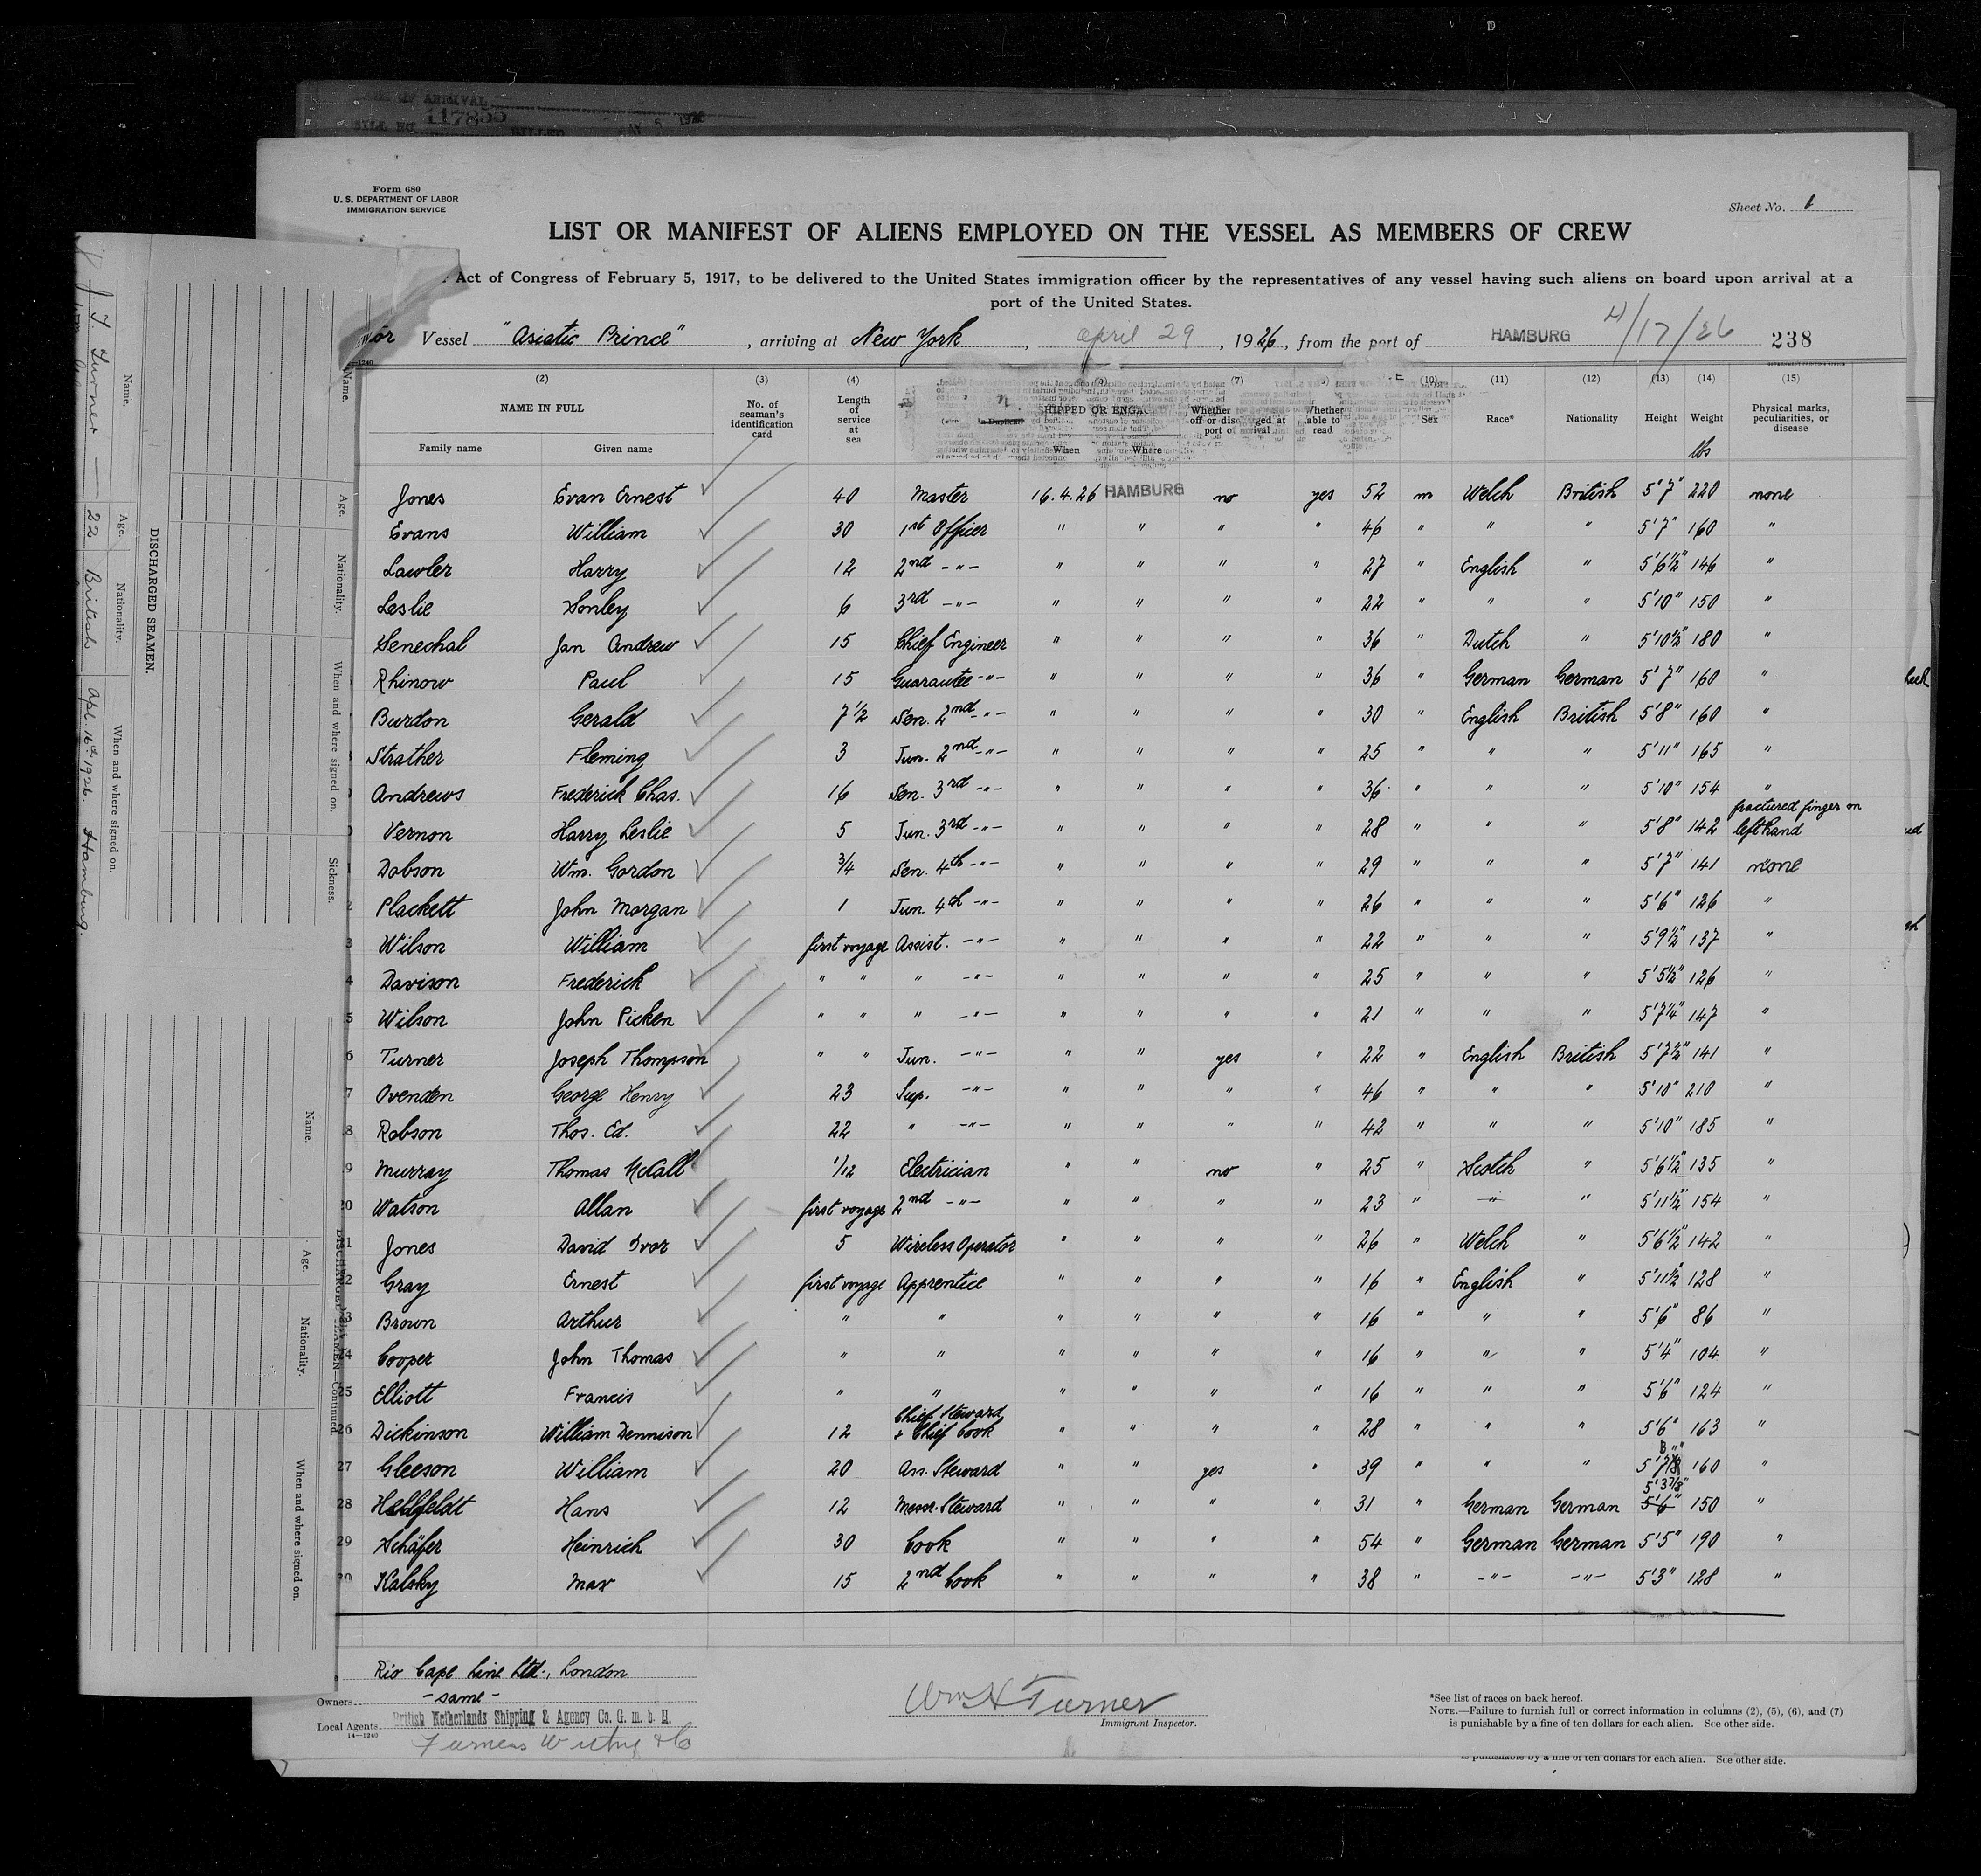 117855
MAY 5 1926
Form 680
U. S. DEPARTMENT OF LABOR
IMMIGRATION SERVICE
Sheet No. 1
LIST OR MANIFEST OF ALIENS EMPLOYED ON THE VESSEL AS MEMBERS OF CREW
Act of Congress of February 5, 1917, to be delivered to the United States immigration officer by the representatives of any vessel having such aliens on board upon arrival at a
port of the United States.
Vessel "Asiatic Prince", arriving at New York, april 29, 1926, from the port of HAMBURG 4/17/26 238
(2) (3) (4) (7) (10) (11) (12) (13) (14) (15)
NAME IN FULL No. of seaman's identification card Length of service at sea SHIPPED OR ENGAG Whether able to read Sex Race* Nationality Height Weight Physical marks, peculiarities, or disease
Family name Given name When Where lbs
Jones Evan Ernest 40 Master 16.4.26 HAMBURG no yes 52 m Welch British 5'7" 220 none
Evans William 30 1st Officer " " " " 46 " " " 5'7" 160 "
Lawler Harry 12 2nd -"- " " " " 27 " English " 5'6½" 146 "
Leslie Sonley 6 3rd -"- " " " " 22 " " " 5'10" 150 "
Senechal Jan Andrew 15 Chief Engineer " " " " 36 " Dutch " 5'10½" 180 "
Rhinow Paul 15 Guarantee -"- " " " " 36 " German German 5'7" 160 "
Burdon Gerald 7½ Sen. 2nd -"- " " " " 30 " English British 5'8" 160 "
Strather Fleming 3 Jun. 2nd -"- " " " " 25 " " " 5'11" 165 "
Andrews Frederick Chas. 16 Sen. 3rd -"- " " " " 36 " " " 5'10" 154 "
Vernon Harry Leslie 5 Jun. 3rd -"- " " " " 28 " " " 5'8" 142 fractured finger on left hand
1 Dobson Wm. Gordon ¾ Sen. 4th -"- " " " " 29 " " " 5'7" 141 none
2 Plackett John Morgan 1 Jun. 4th -"- " " " " 26 " " " 5'6" 126 "
3 Wilson William first voyage Assist. -"- " " " " 22 " " " 5'9½" 137 "
4 Davison Frederick " " " -"- " " " " 25 " " " 5'5½" 126 "
5 Wilson John Picken " " " -"- " " " " 21 " " " 5'7¼" 147 "
6 Turner Joseph Thompson " " Jun. -"- " " yes " 22 " English British 5'7½" 141 "
7 Ovenden George Henry 23 Sup. -"- " " " " 46 " " " 5'10" 210 "
8 Robson Thos. Ed. 22 " -"- " " " " 42 " " " 5'10" 185 "
9 Murray Thomas McCall 1/12 Electrician " " no " 25 " Scotch " 5'6½" 135 "
20 Watson Allan first voyage 2nd -"- " " " " 23 " -"- " 5'11½" 154 "
21 Jones David Ivor 5 Wireless Operator " " " " 26 " Welch " 5'6½" 142 "
22 Gray Ernest first voyage Apprentice " " " " 16 " English " 5'11½" 128 "
23 Brown Arthur " " " " " " 16 " " " 5'6" 86 "
24 Cooper John Thomas " " " " " " 16 " " " 5'4" 104 "
25 Elliott Francis " " " " " " 16 " " " 5'6" 124 "
26 Dickinson William Dennison 12 Chief Steward + Chief Cook " " " " 28 " " " 5'6" 163 "
27 Gleeson William 20 Ass. Steward " " yes " 39 " " " 160 "
28 Hans 12 Messr. Steward " " " " 31 " German German 5'6" 5'3⅞" 150 "
29 Schäfer Heinrich 30 Cook " " " " 54 " German German 5'5" 190 "
30 Kalsky Max 15 2nd Cook " " " " 38 " -"- -"- 5'3" 128 "
Rio Cape Line Ltd., London
Owners -same-
Local Agents British Netherlands Shipping & Agency Co. G. m. b. H.
14—1240
Furness Withy & Co
Wm H Turner
Immigrant Inspector.
*See list of races on back hereof.
NOTE.—Failure to furnish full or correct information in columns (2), (5), (6), and (7)
is punishable by a fine of ten dollars for each alien. See other side.
is punishable by a fine of ten dollars for each alien. See other side.
DISCHARGED SEAMEN.
Name. Age. Nationality. When and where signed on.
J. T. Turner — 22 British Apl. 16th 1926. Hamburg.
Name. Age. Nationality. When and where signed on. Sickness.
DISCHARGED SEAMEN—Continued.
Name. Age. Nationality. When and where signed on.